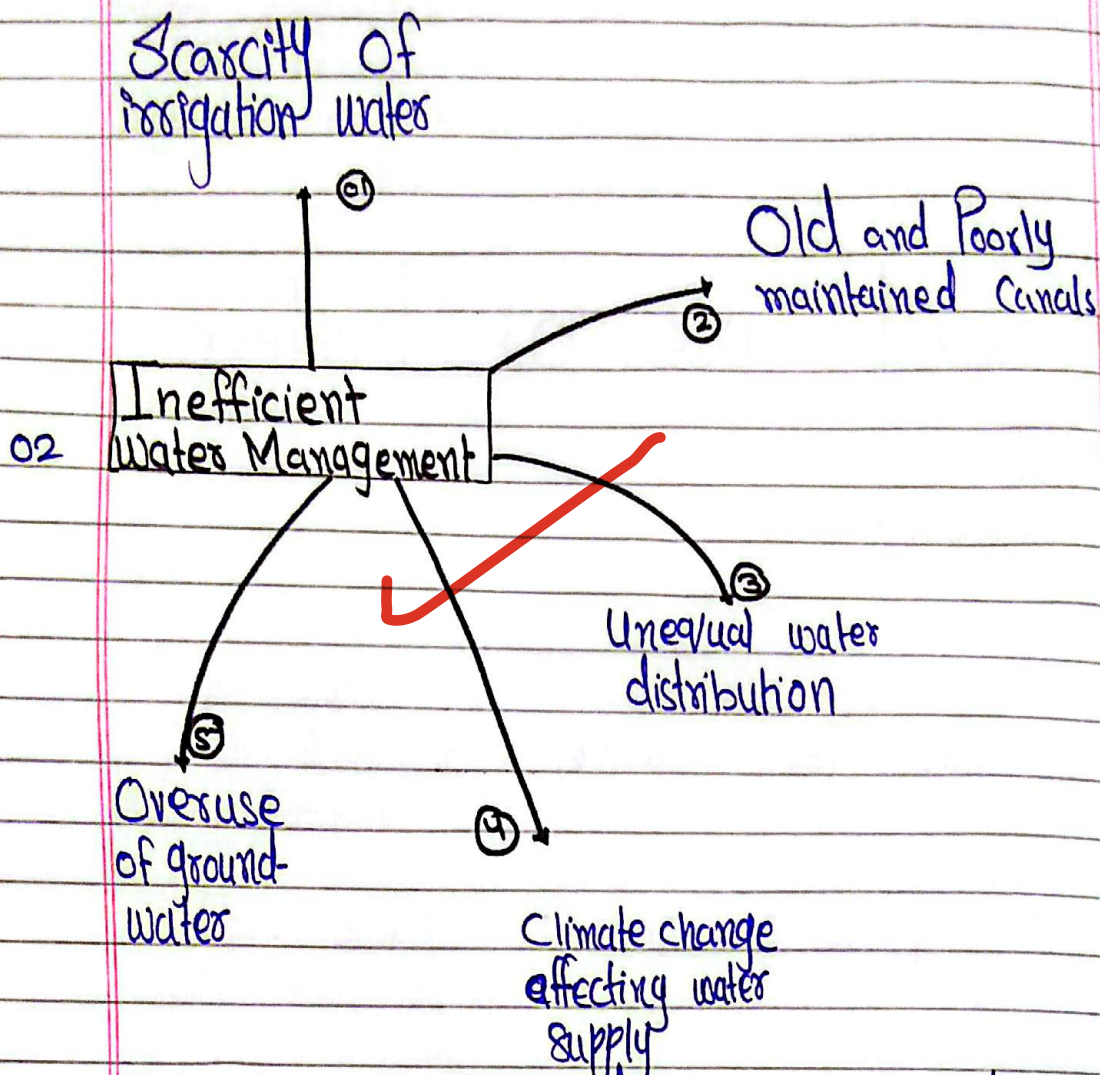 Scarcity Of
irrigation water
01
Old and Poorly
maintained Canals
2
Inefficient
Water Management
02
3
Unequal water
distribution
5
Overuse
of ground-
water
4
Climate change
affecting water
supply